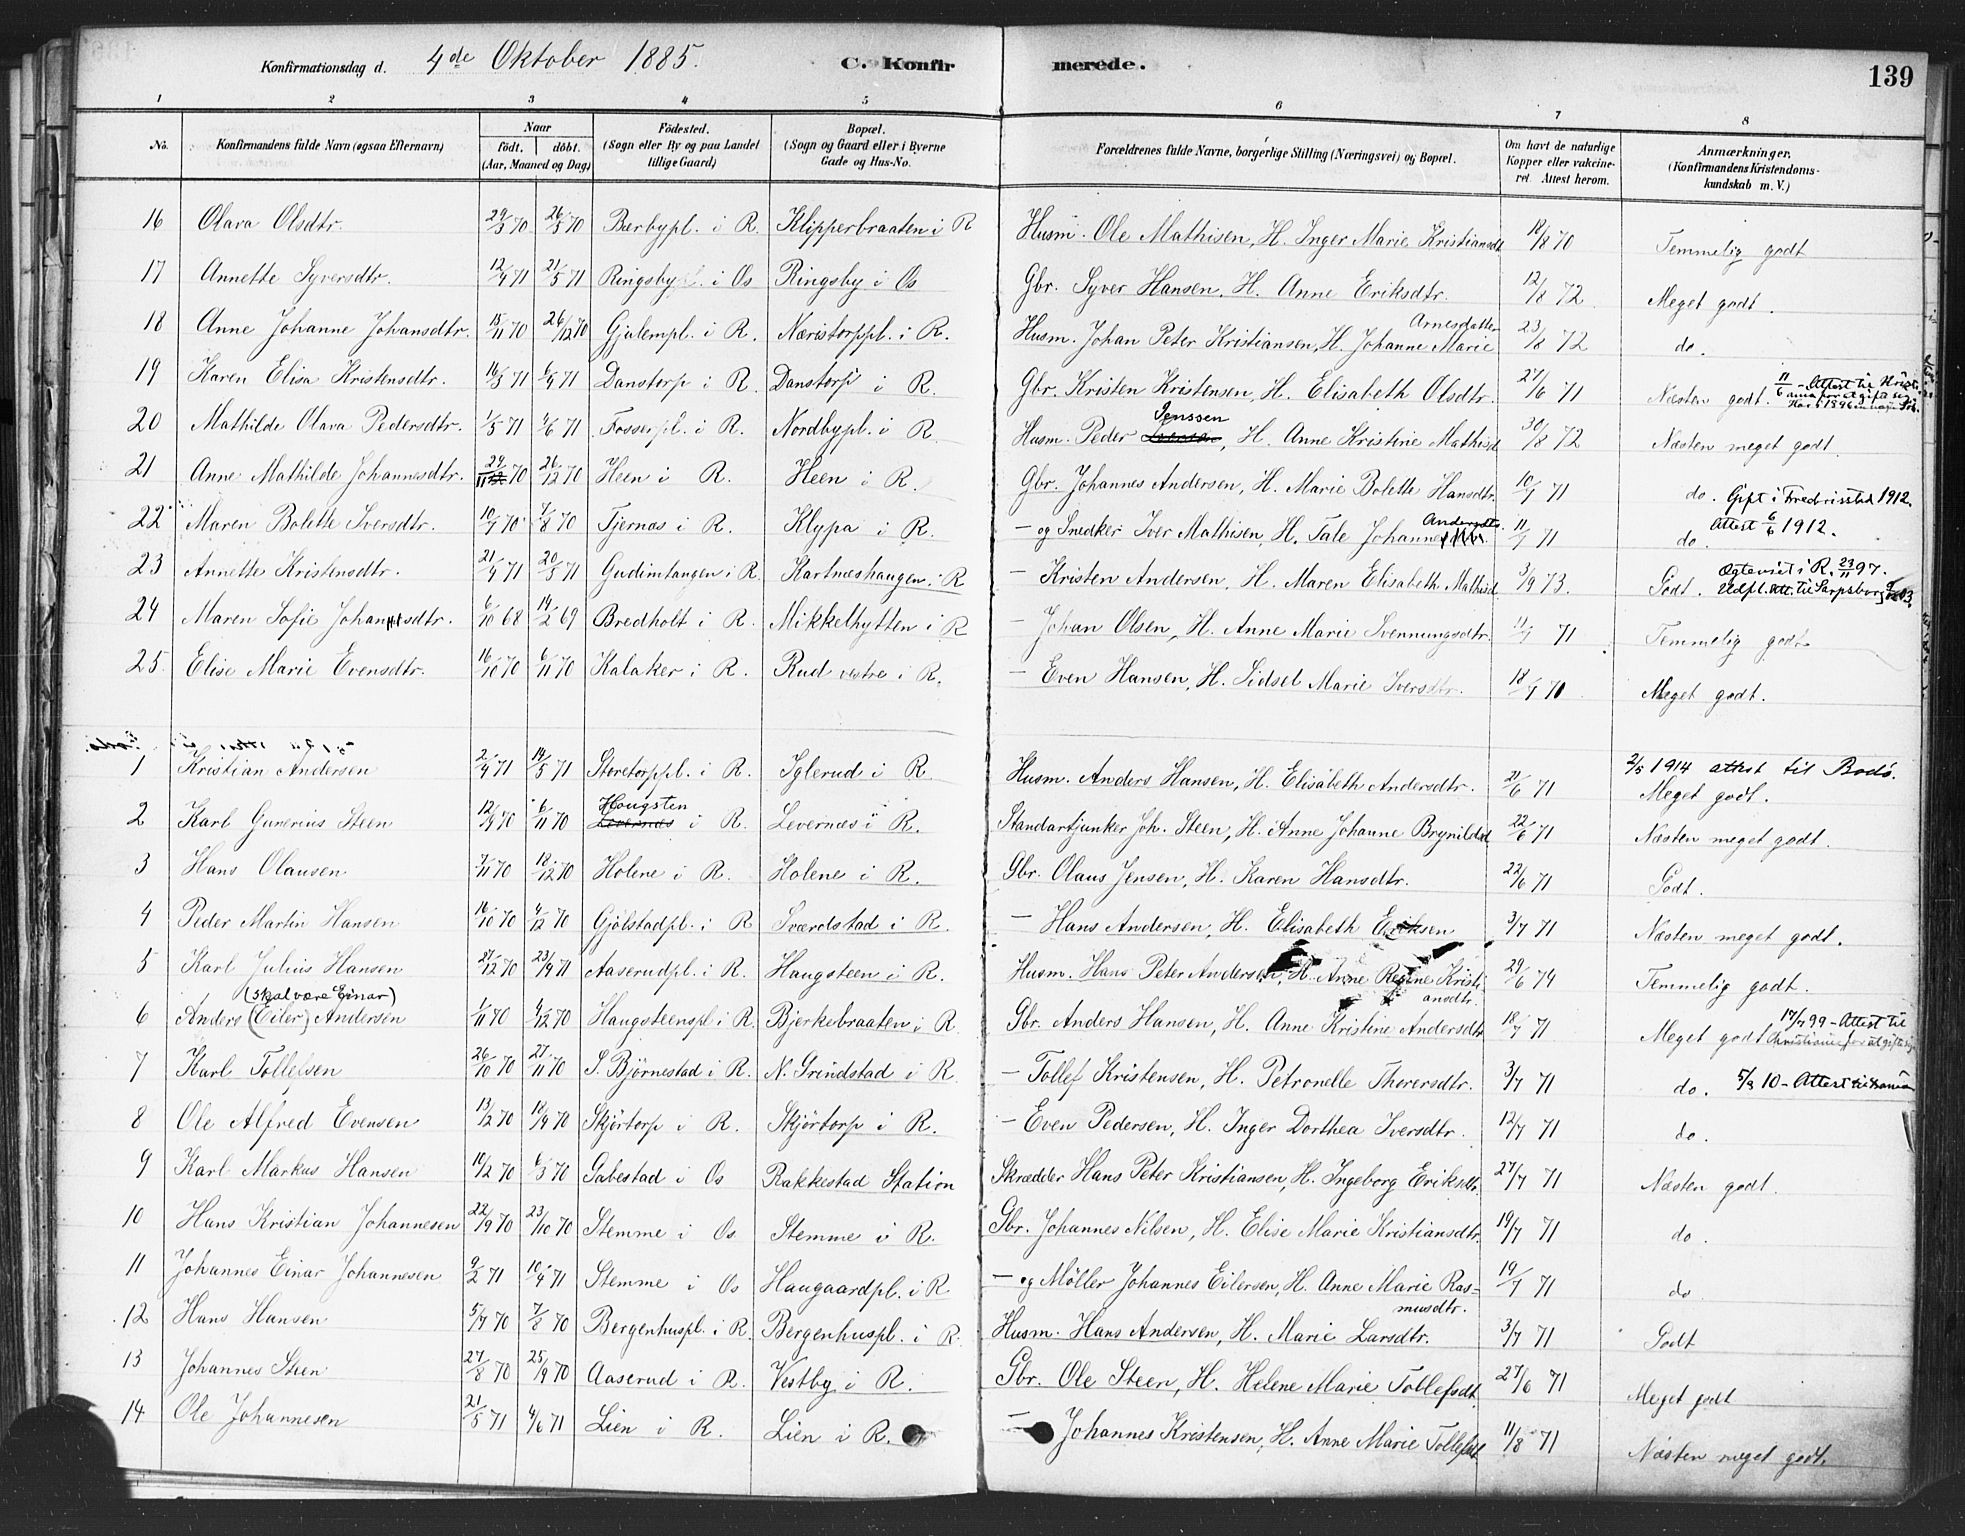 Konfirmationsdag d. 4de Oktober 1885. C. Konfirmerede. 139
1 2 3 4 5 6 7 8
No. Konfirmandens fulde Navn (ogsaa Efternavn) Naar født. døbt. (Aar, Maaned og Dag) Fødested. (Sogn eller By og paa Landet tillige Gaard) Bopæl. (Sogn og Gaard eller i Byerne Gade og Hus-No. Forældrenes fulde Navne, borgerlige Stilling (Næringsvei) og Bopæl. Om havt de naturlige Kopper eller vakcineret. Attest herom. Anmærkninger. (Konfirmandens Kristendomskundskab m. V.)
16 Olava Olsdtr. 29/3 70 26/5 70 Bærbypl. i R. Klipperbraaten i R Husm. Ole Mathisen, H. Inger Marie Kristiansdt 18/8 70 Temmelig godt
17 Annette Syversdtr. 12/4 71 21/5 71 Ringsbypl. i Os Ringsby i Os Gbr. Syver Hansen, H. Anne Eriksdtr. 12/8 72 Meget godt.
18 Anne Johanne Johansdtr. 15/11 70 26/12 70 Gjulempl. i R. Næristorppl. i R. Husm. Johan Peter Kristiansen, H. Johanne Marie Arnesdatter 23/8 72 do.
19 Karen Elisa Kristensdtr. 16/3 71 6/4 71 Danstorp i R. Danstorp i R. Gbr. Kristen Kristensen, H. Elisabeth Olsdtr. 27/6 71 Næsten godt. 11/6 - Attest til Kristiania for at gifte sig.
20 Mathilde Olava Pedersdtr. 1/5 71 4/6 71 Fosserpl. i R. Nordbypl. i R. Husm. Peder Jenssen, H. Anne Kristine Mathisd 30/8 72 Næsten meget godt.
21 Anne Mathilde Johannesdtr. 24/11 70 26/12 70 Heen i R. Heen i R. Gbr. Johannes Andersen, H. Marie Bolette Hansdtr. 10/7 71 do. Gift i Fredrisstad 1912.
22 Maren Bolette Iversdtr. 10/7 70 7/8 70 Tjernæs i R. Klypa i R. - og Snedker Iver Mathisen, H. Tale Johanne Andersdtr. 11/7 71 do. Attest 6/6 1912.
23 Annette Kristensdtr. 21/4 71 20/5 71 Gudimtangen i R Kartnæshaugen i R - Kristen Andersen, H. Maren Elisabeth Mathisd 3/9 73. Godt. Ægteviet i R. 23/11 97. Udfl. att. til Sarpsborg
24 Maren Sofie Johansdtr. 6/10 68 14/2 69 Bredholt i R. Mikkelhytten i R - Johan Olsen, H. Anne Marie Svenningsdtr. 11/7 71 Temmelig godt
25 Elise Marie Evensdtr. 16/10 70 6/11 70 Kalaker i R. Rud vestre i R. - Even Hansen, H. Sidsel Marie Iversdtr. 18/7 70 Meget godt.
1 Kristian Andersen 2/4 71 14/5 71 Storetorppl. i R. Iglerud i R Husm. Anders Hansen, H. Elisabeth Andersdtr. 21/6 71 2/5 1914 attest til Bodø. Meget godt.
2 Karl Gunerius Steen 12/9 70 6/11 70 Haugsten Levernæs i R. Levernæs i R. Standartjunker Joh. Steen, H. Anne Johanne Brynildsd 22/6 71 Næsten meget godt.
3 Hans Olausen 7/11 70 18/12 70 Holene i R. Holene i R. Gbr. Olaus Jensen, H. Karen Hansdtr. 22/6 71 Godt.
4 Peder Martin Hansen 16/10 70 4/12 70 Gjølstadpl. i R Sværdstad i R. - Hans Andersen, H. Elisabeth Eriksen 3/7 71 Næsten meget godt.
5 Karl Julius Hansen 27/12 70 23/4 71 Aaserudpl. i R. Haugsteen i R. Husm. Hans Peter Andersen, H. Anne Regine Kristiansdtr. 29/6 74 Temmelig godt.
6 Anders (Eiler) Andersen (skal være Einar) 1/11 70 4/12 70 Haugsteenspl i R. Bjerkebraaten i R. Gbr. Anders Hansen, H. Anne Kristine Andersdtr 18/7 71 Meget godt 17/7 99 - Attest til Christiania for at gifte sig
7 Karl Tollefsen 26/10 70 27/11 70 S. Bjørnestad i R. N. Grindstad i R. - Tollef Kristensen, H. Petronelle Thorersdtr. 3/7 71 do. 5/3 10 - Attest til
8 Ole Alfred Evensen 13/2 70 18/4 70 Skjørtorp i R. Skjørtorp i R. - Even Pedersen, H. Inger Dorthea Iversdtr. 12/7 71 do.
9 Karl Markus Hansen 10/2 70 6/3 70 Gabestad i Os Rakkestad Station Skrædder Hans Peter Kristiansen, H. Ingeborg Eriksdtr. 27/7 71 Næsten godt.
10 Hans Kristian Johannesen 22/9 70 23/10 70 Stemme i Os Stemme i R. Gbr. Johannes Nilsen, H. Elise Marie Kristiansdtr. 19/7 71 do.
11 Johannes Einar Johannesen 9/2 71 10/4 71 Stemme i Os Haugaardpl. i R - og Møller Johannes Eilersen, H. Anne Marie Rasmusdtr. 19/7 71 do
12 Hans Hansen 5/7 70 7/8 70 Bergenhuspl. i R Bergenhuspl. i R. Husm. Hans Andersen, H. Marie Larsdtr. 3/7 71 Godt
13 Johannes Steen 27/8 70 25/9 70 Aaserud i R. Vestby i R. Gbr. Ole Steen, H. Helene Marie Tollefsdt. 27/6 71 Meget godt
14 Ole Johannesen 21/5 71 4/6 71 Lien i R. Lien i R. - Johannes Kristensen, H. Anne Marie Tollefsdt 11/8 71 Næsten meget godt.